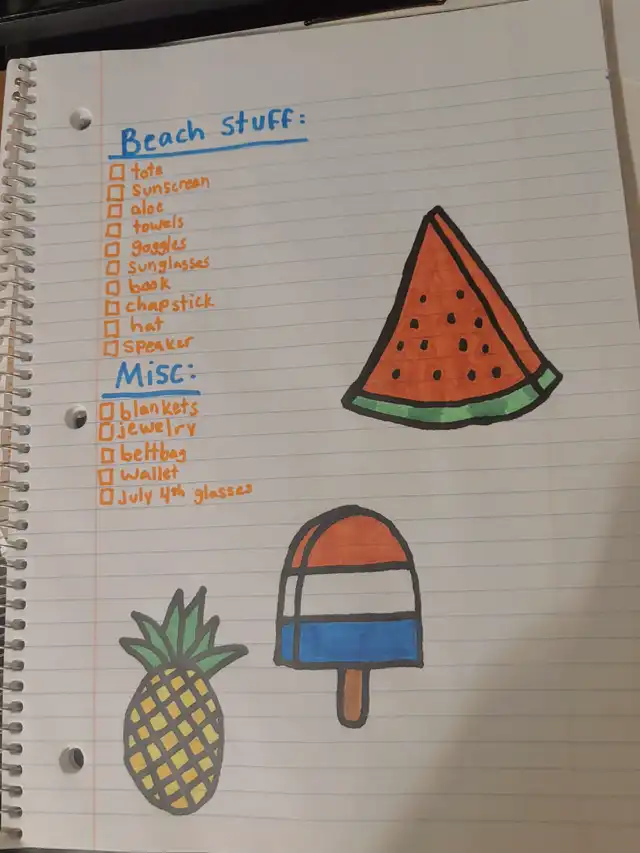 Beach Stuff:
tote
sunscreen
aloe
towels
goggles
sunglasses
book
chapstick
hat
speaker
Misc:
blankets
jewelry
beltbag
wallet
July 4th glasses